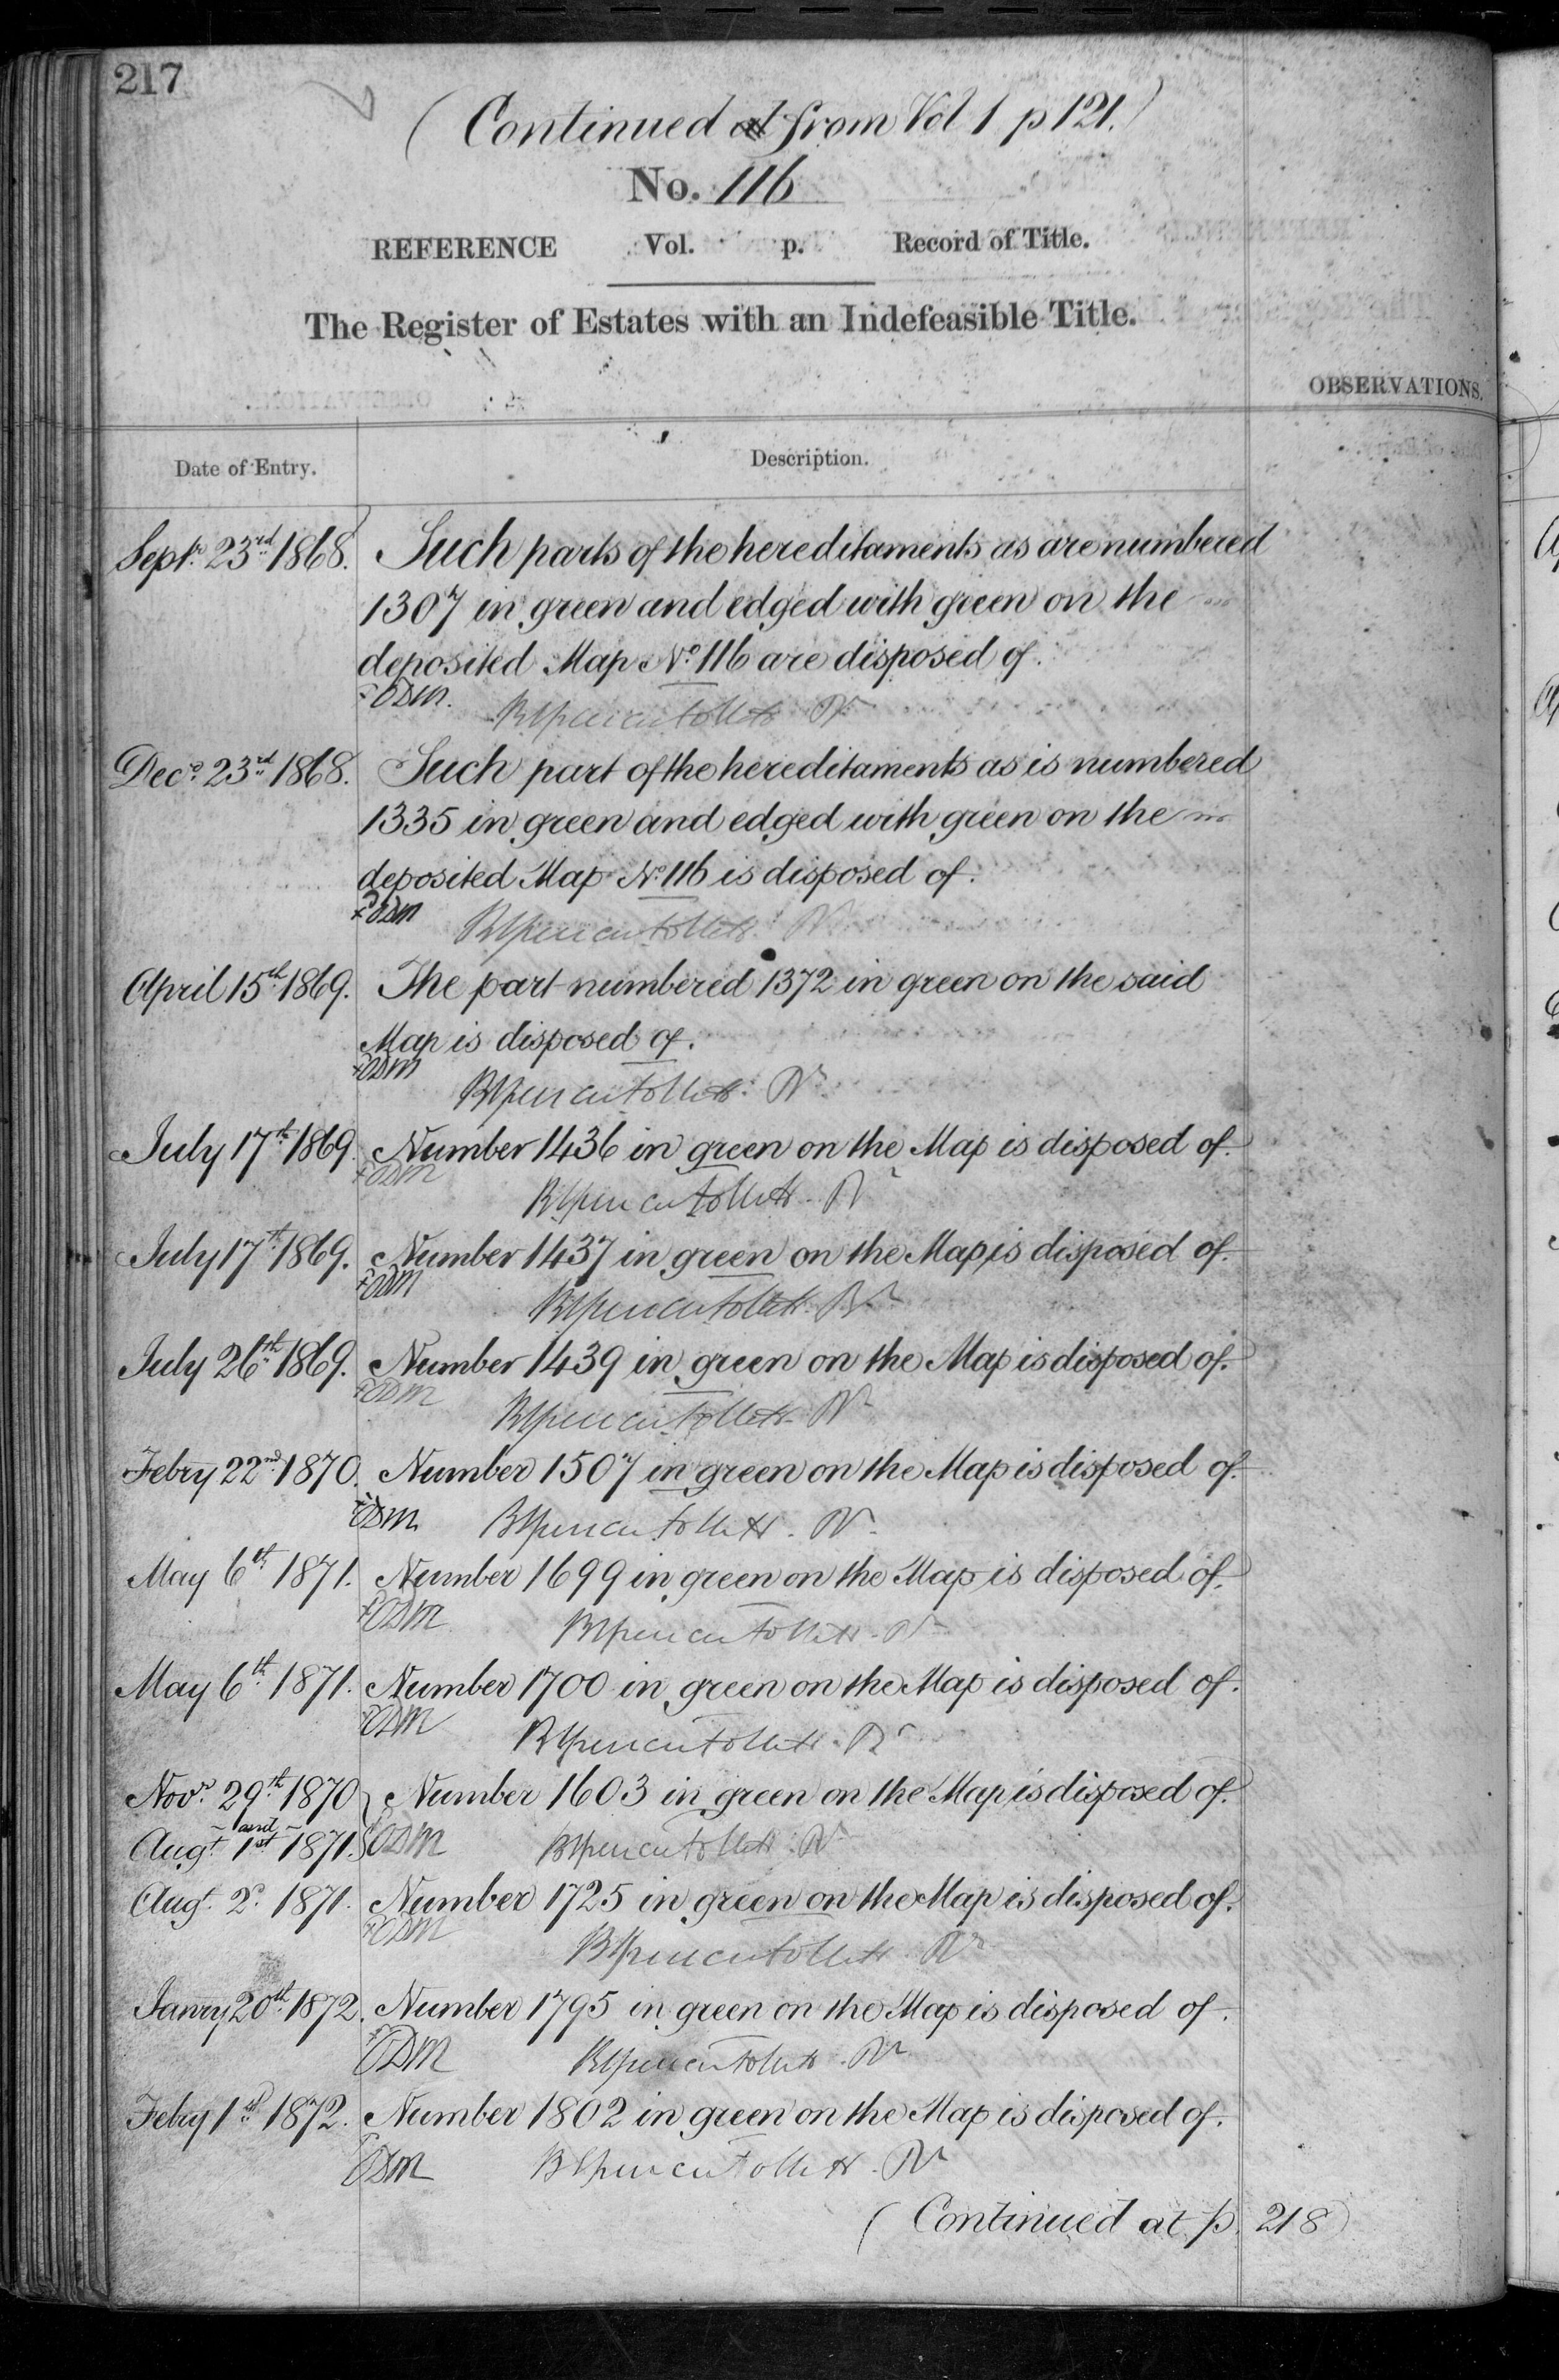 217
(Continued at from Vol 1 p 121.)
No. 116
REFERENCE Vol. p. Record of Title.
The Register of Estates with an Indefeasible Title.
OBSERVATIONS.
Date of Entry. Description.
Septr. 23rd 1868. Such parts of the hereditaments as are numbered
1307 in green and edged with green on the
deposited Map No. 116 are disposed of.
ODM.
Decr. 23rd 1868. Such part of the hereditaments as is numbered
1335 in green and edged with green on the
deposited Map No. 116 is disposed of.
ODM
April 15th 1869. The part numbered 1372 in green on the said
Map is disposed of.
ODM
July 17th 1869. Number 1436 in green on the Map is disposed of.
ODM
July 17th 1869. Number 1437 in green on the Map is disposed of.
ODM
July 26th 1869. Number 1439 in green on the Map is disposed of.
ODM
Febry 22nd 1870. Number 1507 in green on the Map is disposed of.
ODM
May 6th 1871. Number 1699 in green on the Map is disposed of.
ODM
May 6th 1871. Number 1700 in green on the Map is disposed of.
ODM
Novr. 29th 1870 Number 1603 in green on the Map is disposed of.
and
Augt. 1st 1871. ODM
Augt. 2d. 1871. Number 1725 in green on the Map is disposed of.
ODM
Janry 20th 1872. Number 1795 in green on the Map is disposed of.
ODM
Febry 1st 1872. Number 1802 in green on the Map is disposed of.
ODM
(Continued at p. 218)